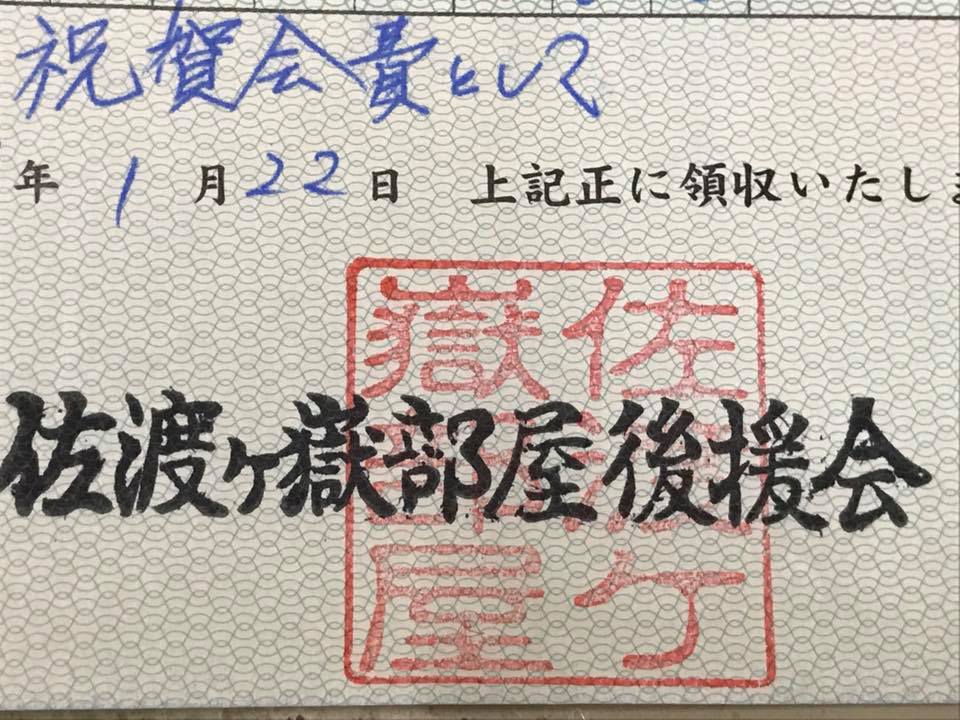 祝賀会費として
年 1月22日 上記正に領収いたしま
佐渡ヶ嶽部屋後援会
佐渡ケ
嶽部屋